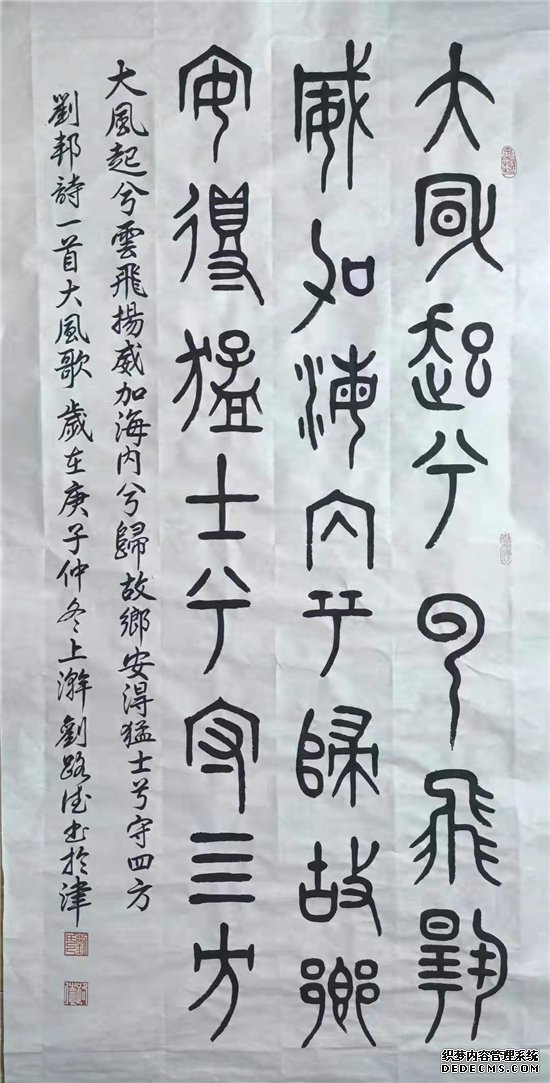 大風起兮雲飛揚
威加海內兮歸故鄉
安得猛士兮守四方
大風起兮雲飛揚威加海內兮歸故鄉安得猛士兮守四方
劉邦詩一首大風歌歲在庚子仲冬上澣劉路法書於津
织梦内容管理系统
DEDECMS.COM